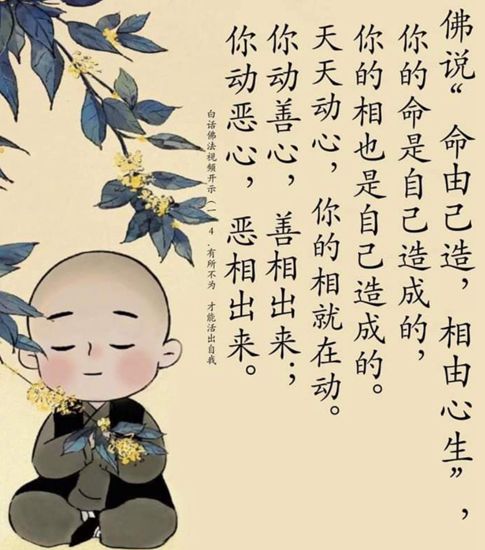 佛说“命由己造，相由心生”，
你的命是自己造成的，
你的相也是自己造成的。
天天动心，你的相就在动。
你动善心，善相出来；
你动恶心，恶相出来。
白话佛法视频开示（一）4．有所不为 才能活出自我